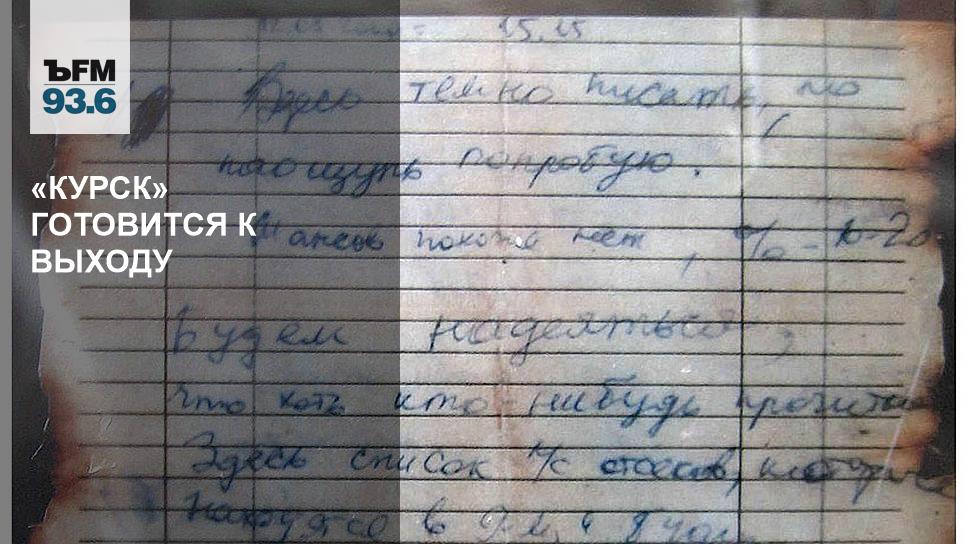 ЪFM
93.6
«КУРСК»
ГОТОВИТСЯ К
ВЫХОДУ
15.15
Здесь темно писать, но
наощупь попробую.
Шансов похоже нет, % - 10-20
Будем надеяться,
что хоть кто-нибудь прочитает
Здесь список л/с отсеков, которые
находятся в 9-м и